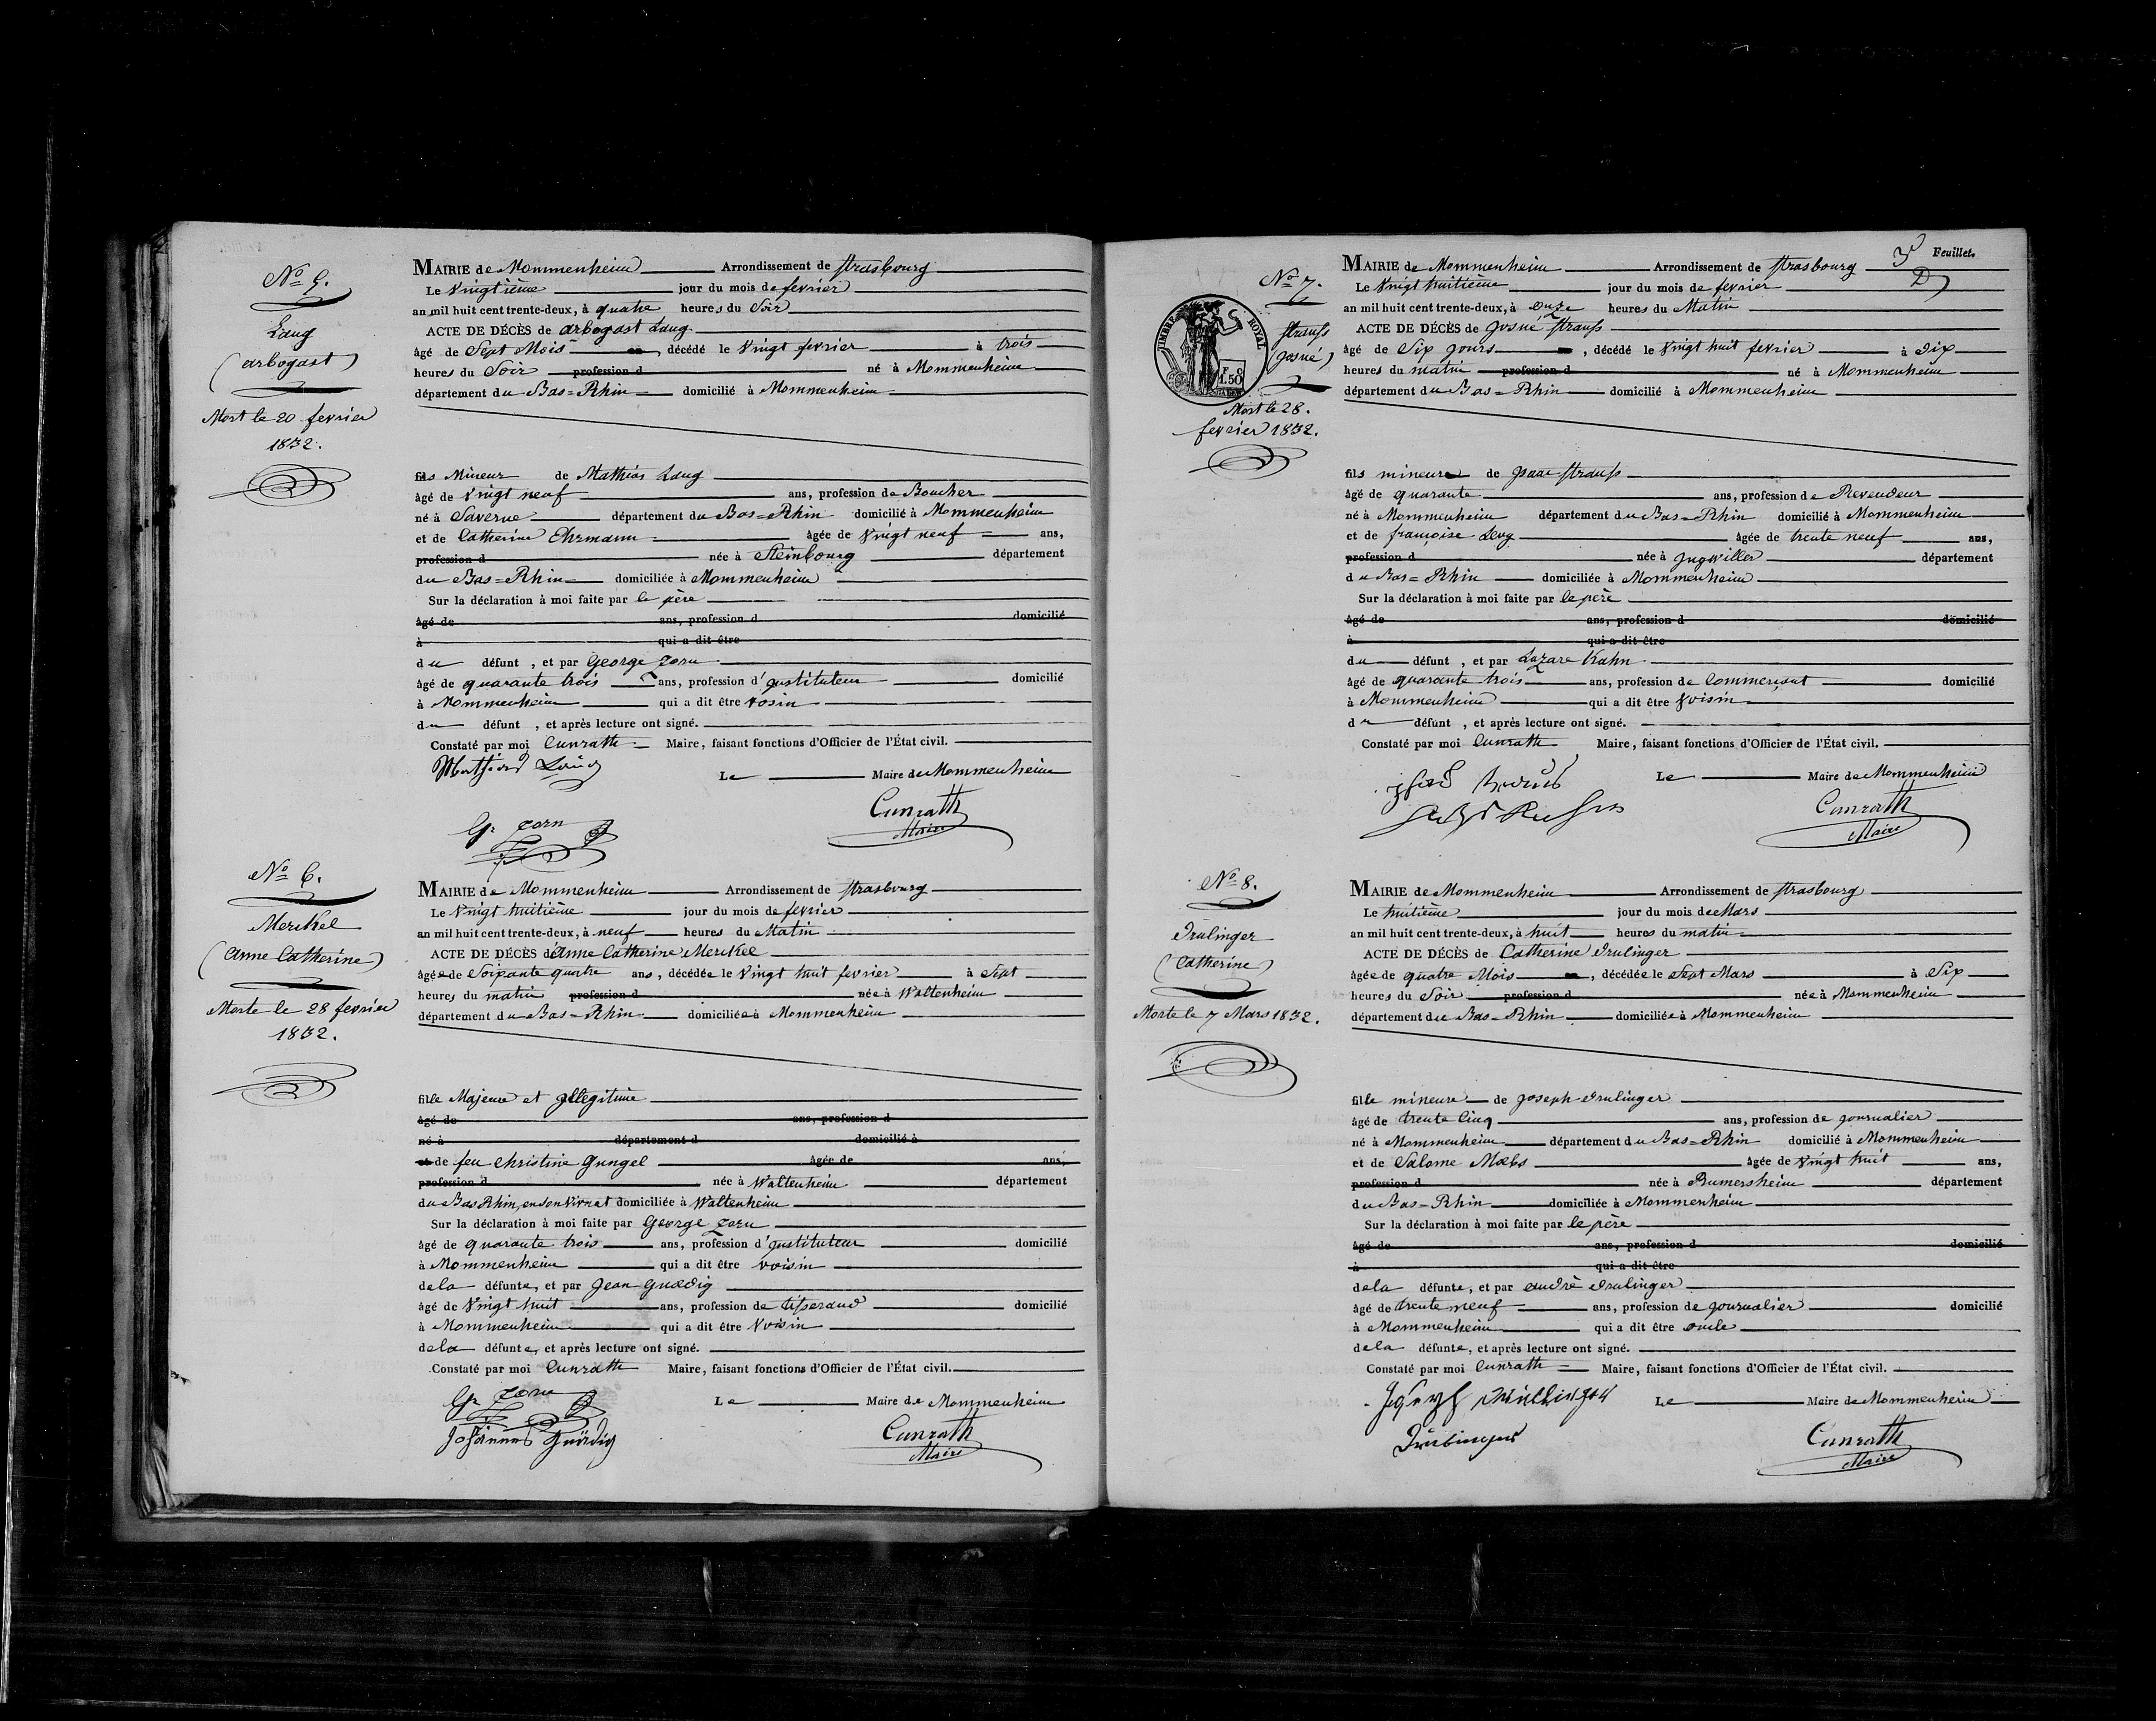 No 5.
Laug
(arbogast)
Mort le 20 fevrier
1832.
MAIRIE de Mommenheim Arrondissement de Strasbourg
Le Vingtième jour du mois de fevrier
an mil huit cent trente-deux, à quatre heures du Soir
ACTE DE DÉCÈS de arbogast Laug
âgé de Sept Mois, décédé le Vingt fevrier à trois
heures du Soir profession d né à Mommenheim
département du Bas=Rhin domicilié à Mommenheim
fils Mineur de Mathias Laug
âgé de Vingt neuf ans, profession de Boucher
né à Saverne département du Bas=Rhin domicilié à Mommenheim
et de Catherine Ehrmann âgée de Vingt neuf ans,
profession d née à Steinbourg département
du Bas=Rhin domiciliée à Mommenheim
Sur la déclaration à moi faite par le père
âgé de ans, profession d domicilié
à qui a dit être
du défunt, et par George Zorn
âgé de quarante trois ans, profession d'Instituteur domicilié
à Mommenheim qui a dit être vosin
du défunt, et après lecture ont signé.
Constaté par moi Cunrath Maire, faisant fonctions d'Officier de l'État civil.
Mathias Laug
Le Maire de Mommenheim
Cunrath
Maire
G. Zorn
No 6.
Merckel
(Anne Catherine)
Morte le 28 fevrier
1832.
MAIRIE de Mommenheim Arrondissement de Strasbourg
Le Vingt huitième jour du mois de fevrier
an mil huit cent trente-deux, à neuf heures du Matin
ACTE DE DÉCÈS d'Anne Catherine Merckel
âgée de Soixante quatre ans, décédée le Vingt huit fevrier à Sept
heures du matin profession d née à Waltenheim
département du Bas=Rhin domiciliée à Mommenheim
fille Majeure et Illegitime
âgé de ans, profession d
né à département d domicilié à
et de feu Christine Gungel âgée de ans,
profession d née à Waltenheim département
du Bas Rhin, en son vivnat domiciliée à Waltenheim
Sur la déclaration à moi faite par George Zorn
âgé de quarante trois ans, profession d'Instituteur domicilié
à Mommenheim qui a dit être voisin
de la défunte, et par Jean Guædig
âgé de Vingt huit ans, profession de tisserand domicilié
à Mommenheim qui a dit être Voisin
de la défunte, et après lecture ont signé.
Constaté par moi Cunrath Maire, faisant fonctions d'Officier de l'État civil.
G. Zorn
Le Maire de Mommenheim
Johannes Guädig
Cunrath
Maire
3
Feuillet.
D
No 7.
TIMBRE ROYAL
F. C
1.50
Strauss
(Josué)
Mort le 28.
fevrier 1832.
MAIRIE de Mommenheim Arrondissement de Strasbourg
Le Vingt huitième jour du mois de fevrier
an mil huit cent trente-deux, à onze heures du Matin
ACTE DE DÉCÈS de Josué Strauss
âgé de Six Jours, décédé le Vingt huit fevrier à dix
heures du matin profession d né à Mommenheim
département du Bas=Rhin domicilié à Mommenheim
fils mineure de Isaac Strauss
âgé de quarante ans, profession de Revendeur
né à Mommenheim département du Bas=Rhin domicilié à Mommenheim
et de françoise Levy âgée de trente neuf ans,
profession d née à Ingwiller département
du Bas=Rhin domiciliée à Mommenheim
Sur la déclaration à moi faite par le père
âgé de ans, profession d domicilié
à qui a dit être
du défunt, et par Lazare Kahn
âgé de quarante trois ans, profession de Commerçant domicilié
à Mommenheim qui a dit être Voisin
du défunt, et après lecture ont signé.
Constaté par moi Cunrath Maire, faisant fonctions d'Officier de l'État civil.
Le Maire de Mommenheim
Cunrath
Maire
No 8.
Drulinger
(Catherine)
Morte le 7 Mars 1832.
MAIRIE de Mommenheim Arrondissement de Strasbourg
Le huitième jour du mois de Mars
an mil huit cent trente-deux, à huit heures du matin
ACTE DE DÉCÈS de Catherine Drulinger
âgée de quatre Mois, décédée le Sept Mars à Six
heures du Soir profession d née à Mommenheim
département du Bas=Rhin domiciliée à Mommenheim
fille mineure de Joseph Drulinger
âgé de trente Cinq ans, profession de Journalier
né à Mommenheim département du Bas=Rhin domicilié à Mommenheim
et de Salome Mæhs âgée de Vingt huit ans,
profession d née à Rumersheim département
du Bas=Rhin domiciliée à Mommenheim
Sur la déclaration à moi faite par le père
âgé de ans, profession d domicilié
à qui a dit être
de la défunte, et par André Drulinger
âgé de trente neuf ans, profession de Journalier domicilié
à Mommenheim qui a dit être oncle
de la défunte, et après lecture ont signé.
Constaté par moi Cunrath Maire, faisant fonctions d'Officier de l'État civil.
Le Maire de Mommenheim
Cunrath
Maire